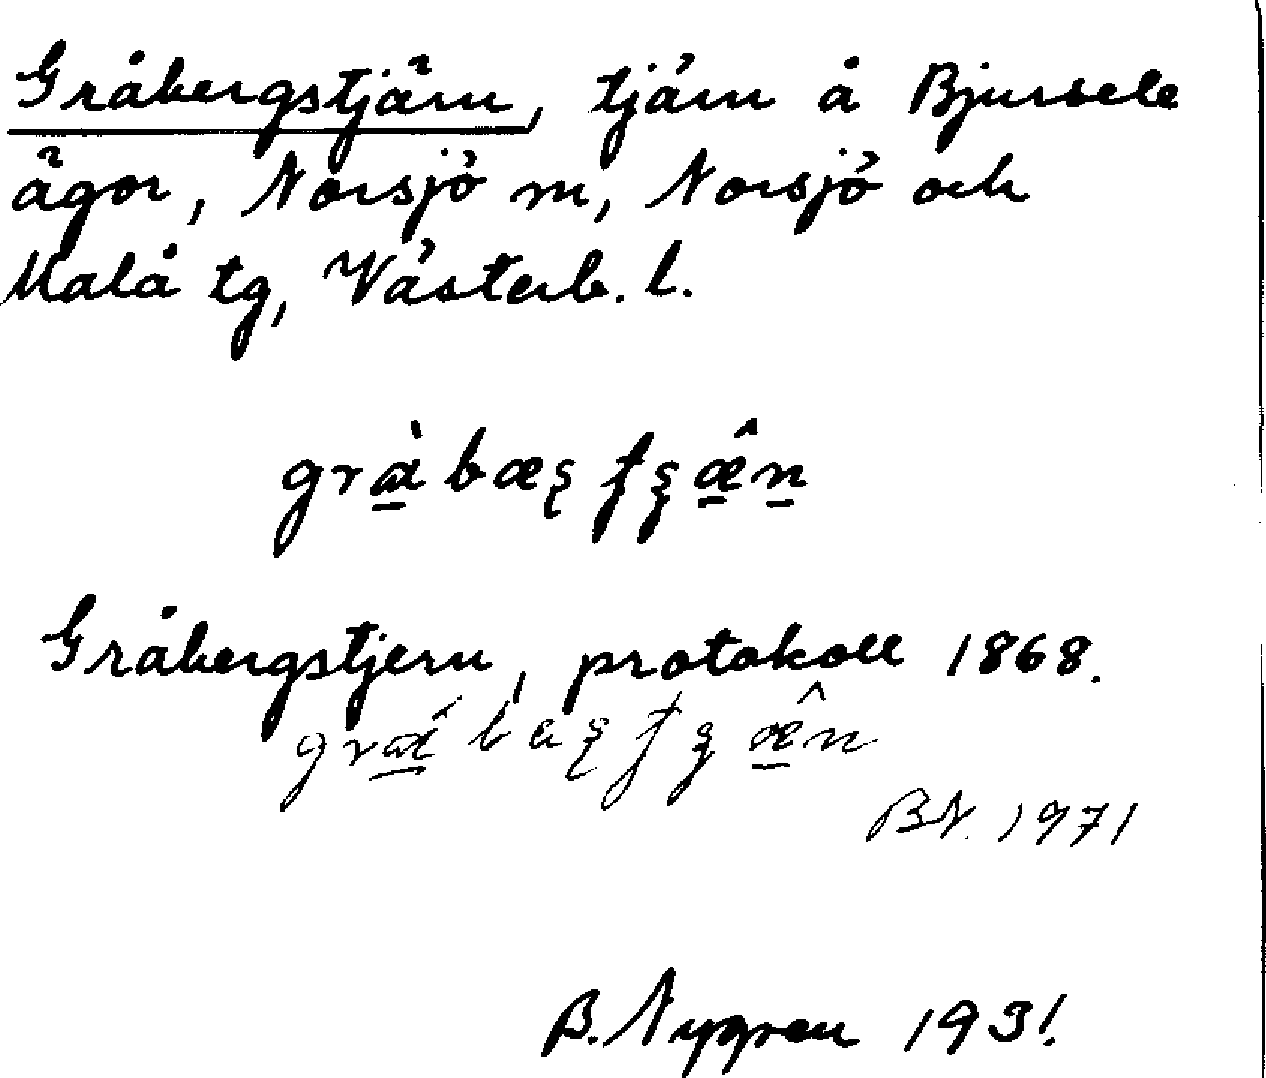 Gråbergstjärn, tjärn å Bjursele
ägor, Norsjö m, Norsjö och
Malå tg, Västerb. l.
Gråbergstjern, protokoll 1868.
BN. 1971
B. Nygren 1931.